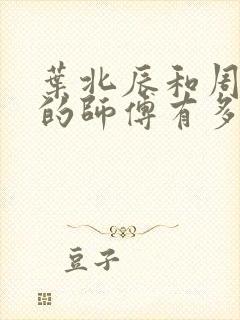 葉北辰和周
的師傅有多
豆子